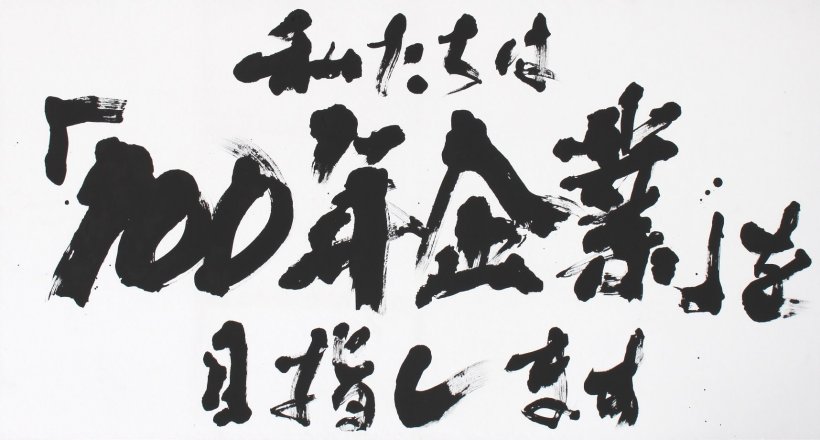 私たちは
「100年企業」を
目指します